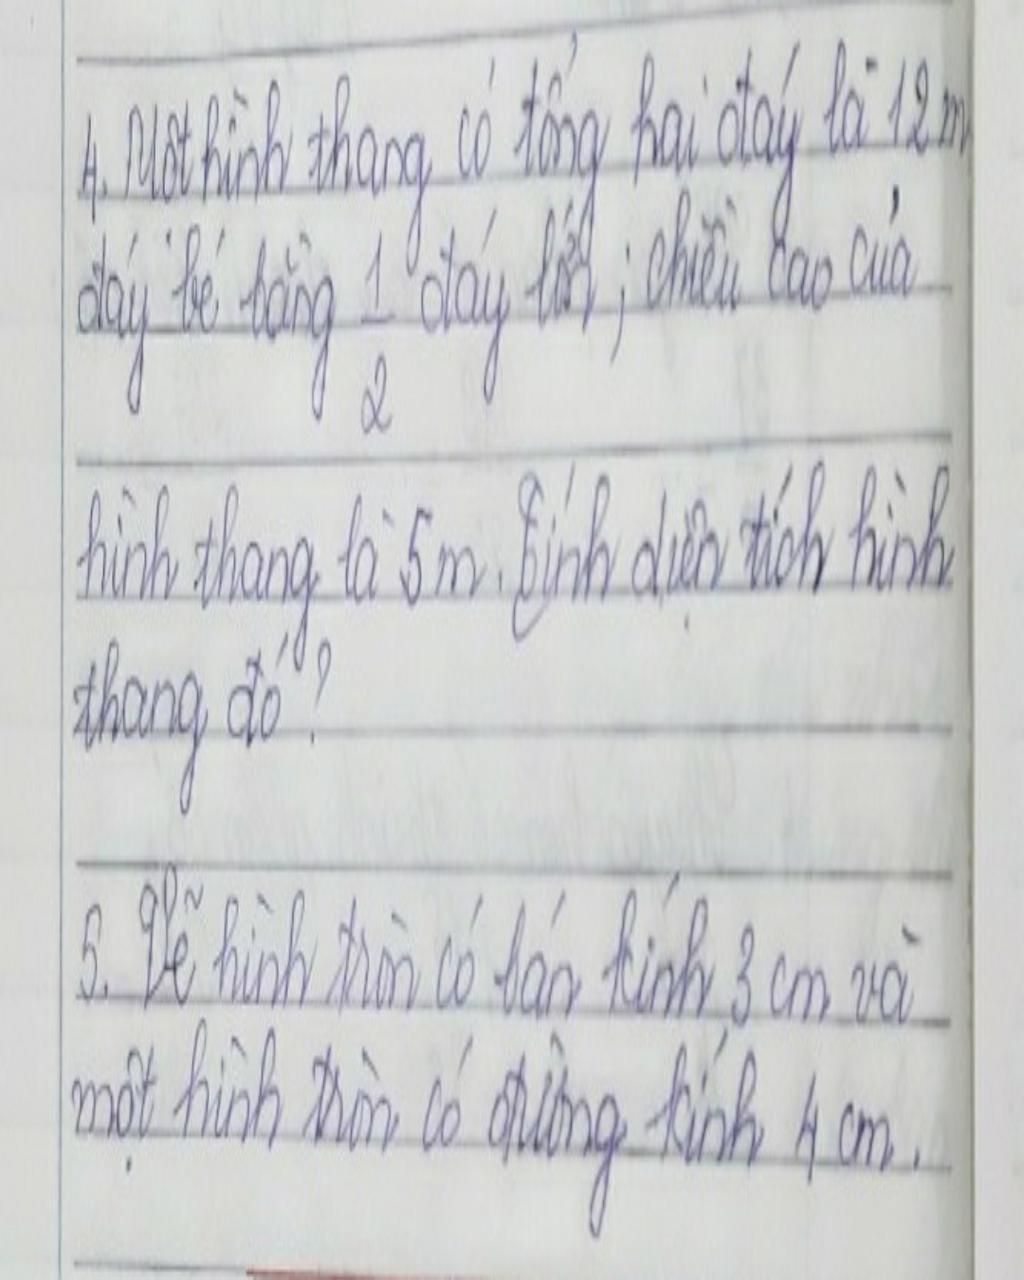 4. Một hình thang có tổng hai đáy là 12 m
đáy bé bằng 1/2 đáy lớn; chiều cao của
hình thang là 5 m. Tính diện tích hình
thang đó?
5. Vẽ hình tròn có bán kính 3 cm và
một hình tròn có đường kính 4 cm.